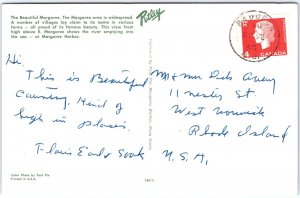 The Beautiful Margaree. The Margaree area is widespread.
A number of villages lay claim to its name in various
forms - all proud of its famous beauty. This view from
high above E. Margaree shows the river emptying into
the sea - at Margaree Harbor.
CANADA
4
Hi,
This is Beautiful
Country. Kind of
high in places.
Mr & Mrs
11
West Warwick
Rhode Island
U.S.A.
Color Photo by
Printed in U.S.A.